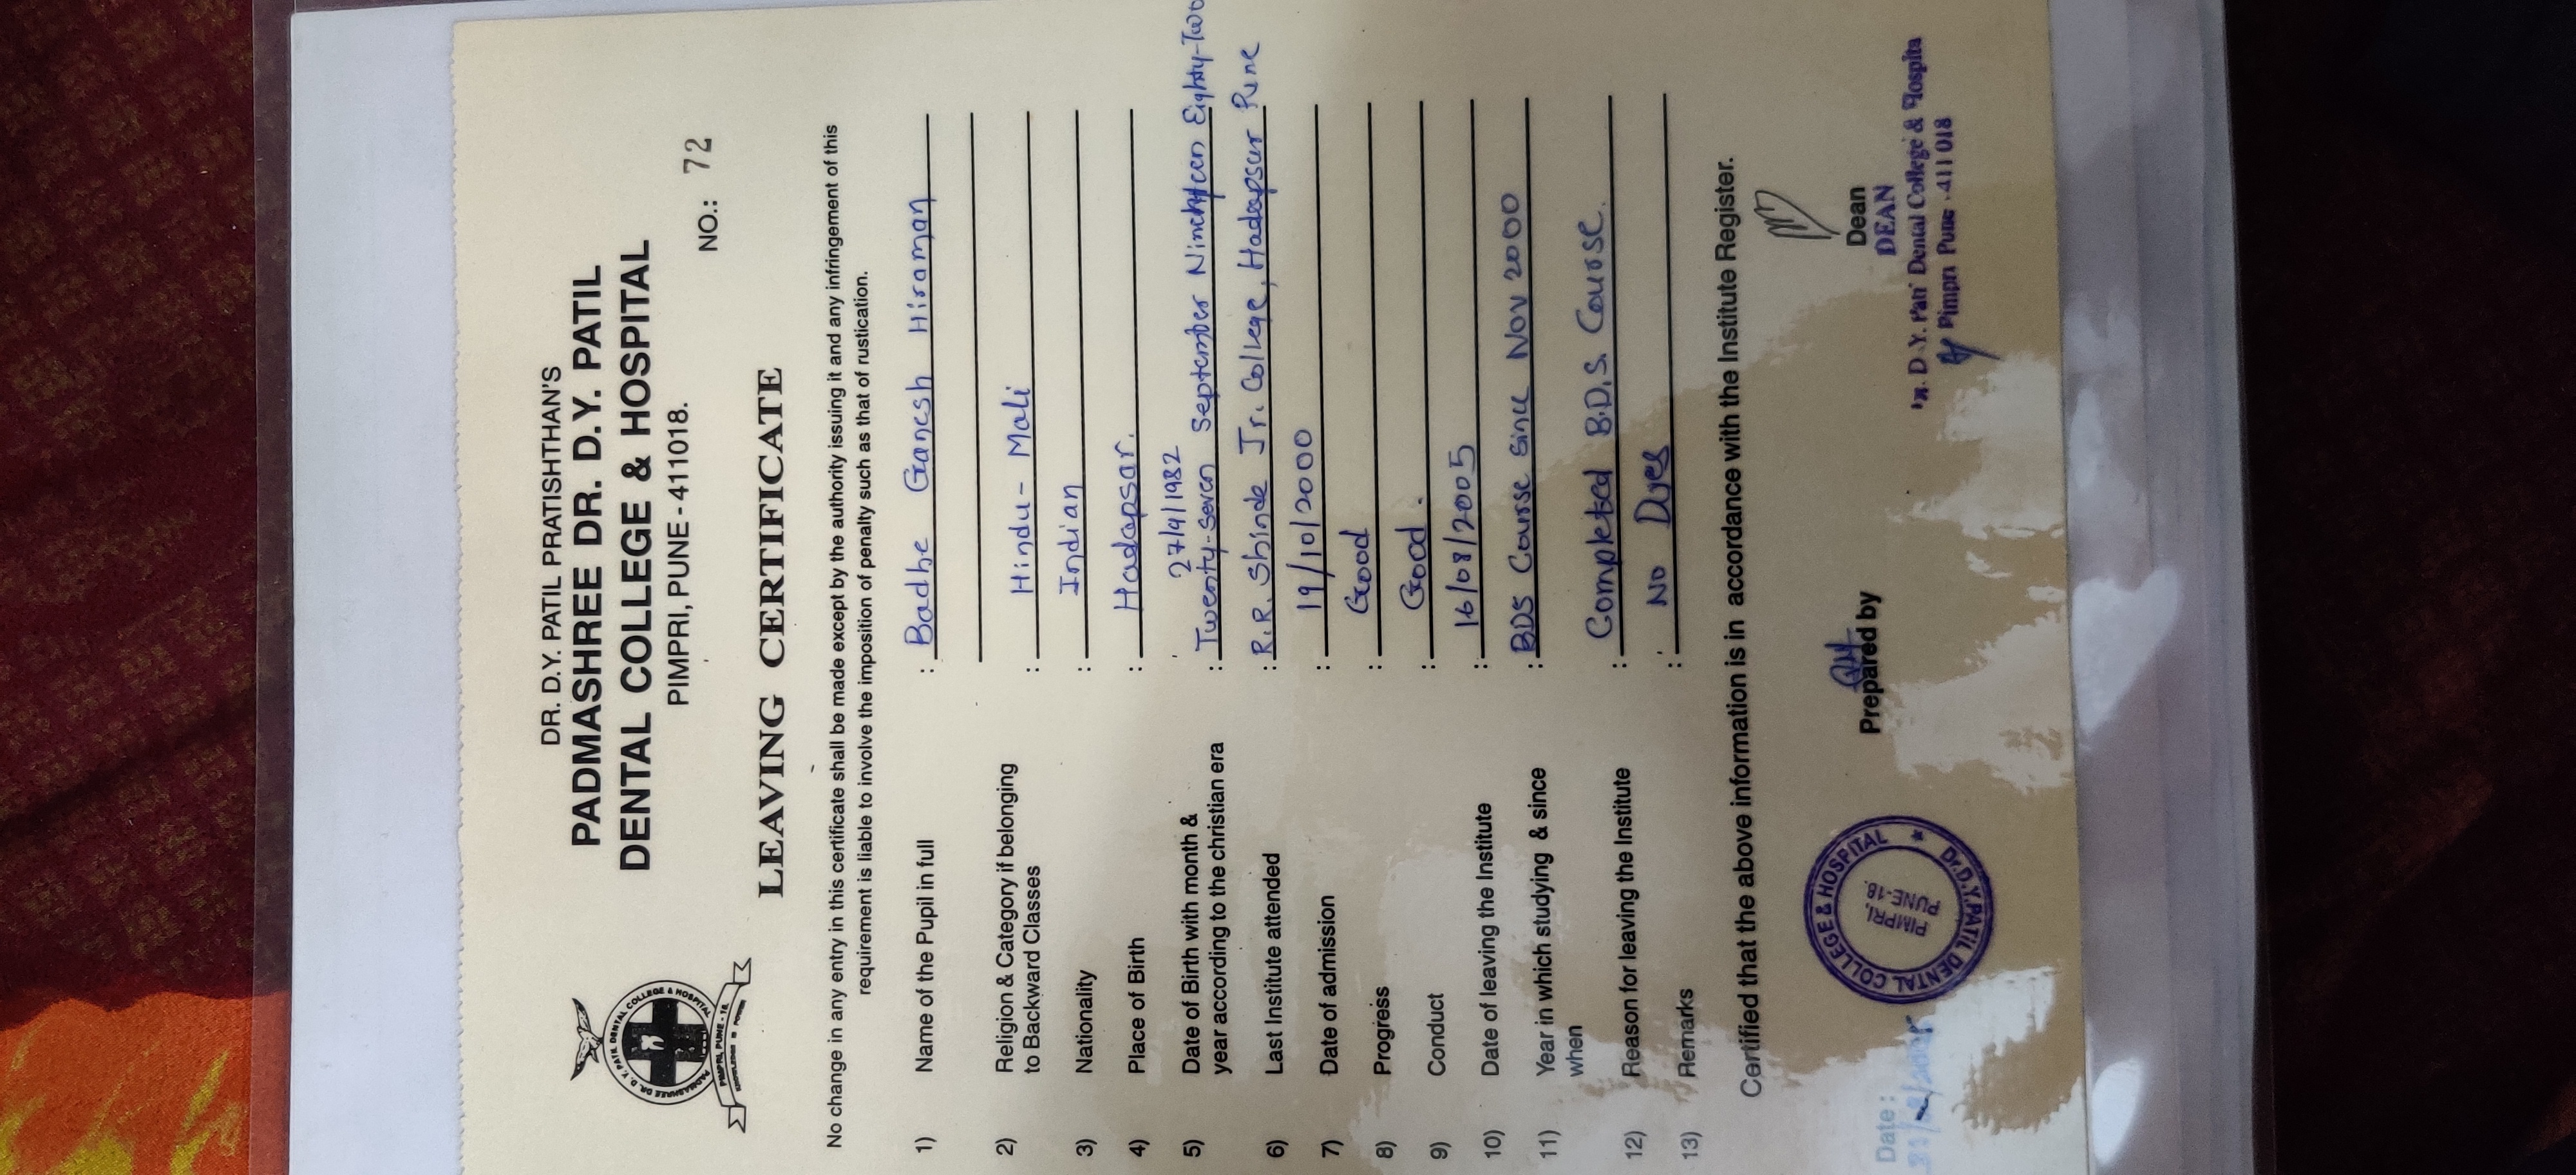 DR. D.Y. PATIL PRATISHTHAN'S
PADMASHREE DR. D.Y. PATIL
DENTAL COLLEGE & HOSPITAL
PIMPRI, PUNE - 411018.
NO.: 72
PADMASHREE DR. D. Y. PATIL DENTAL COLLEGE & HOSPITAL
PIMPRI, PUNE - 18.
LEAVING CERTIFICATE
No change in any entry in this certificate shall be made except by the authority issuing it and any infringement of this
requirement is liable to involve the imposition of penalty such as that of rustication.
1) Name of the Pupil in full : Badhe Ganesh Hiraman
2) Religion & Category if belonging
to Backward Classes : Hindu - Mali
3) Nationality : Indian
4) Place of Birth : Hadapsar.
5) Date of Birth with month & 27/9/1982
year according to the christian era : Twenty-Seven September Nineteen Eighty-Two
6) Last Institute attended : R.R. Shinde Jr. College, Hadapsar Pune
7) Date of admission : 19/10/2000
8) Progress : Good
9) Conduct : Good.
10) Date of leaving the Institute : 16/08/2005
11) Year in which studying & since : BDS Course since Nov 2000
when
12) Reason for leaving the Institute : Completed B.D.S. Course.
13) Remarks : No Dyes
Certified that the above information is in accordance with the Institute Register.
Date :
Dr.D.Y.PATIL DENTAL COLLEGE & HOSPITAL
PIMPRI,
PUNE-18.
Prepared by
Dean
DEAN
D.Y. Patil Dental College & Hospita
Pimpri Pune - 411 018